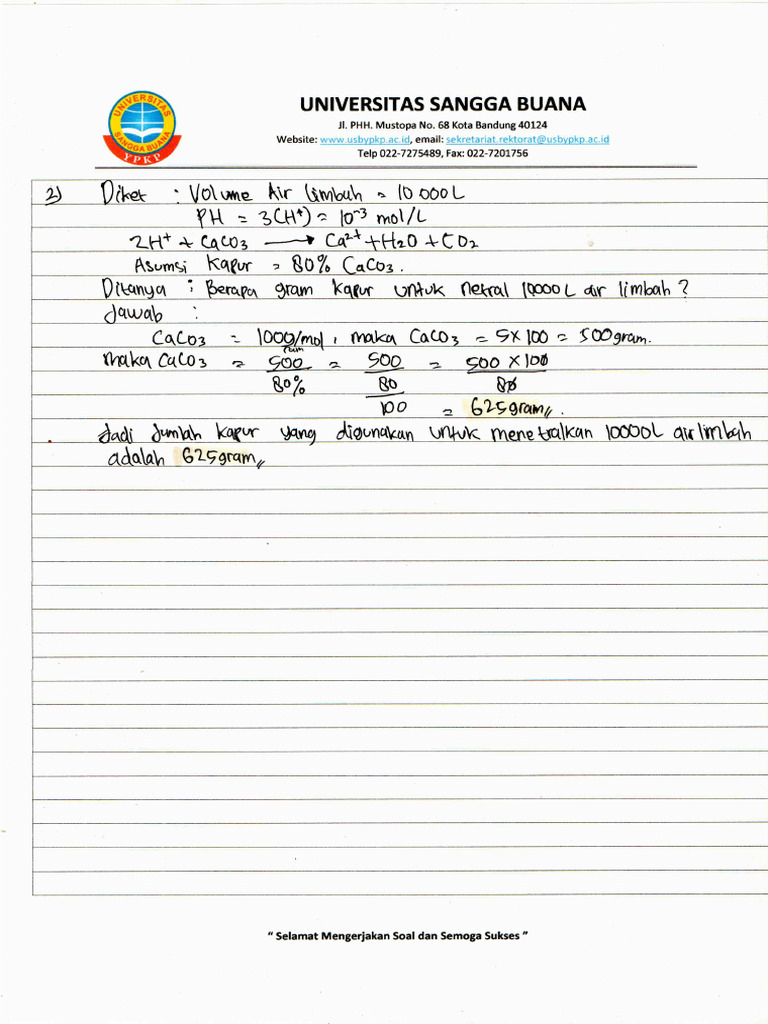 UNIVERSITAS SANGGA BUANA
YPKP
UNIVERSITAS SANGGA BUANA
Jl. PHH. Mustopa No. 68 Kota Bandung 40124
Website: www.usbypkp.ac.id, email: sekretariat.rektorat@usbypkp.ac.id
Telp 022-7275489, Fax: 022-7201756
2) Diket : Volume Air limbah = 10 000 L
PH = 3 (H⁺) = 10⁻³ mol/L
2H⁺ + CaCO3 → Ca²⁺ + H2O + CO2
Asumsi Kapur = 80% CaCO3.
Ditanya : Berapa gram kapur untuk netral 10000 L air limbah ?
Jawab :
CaCO3 = 100g/mol, maka CaCO3 = 5 x 100 = 500 gram.
maka CaCO3 = 500 gram / 80% = 500 / 80/100 = 500 x 100 / 80
= 625 gram //.
Jadi Jumlah kapur yang digunakan untuk menetralkan 10000L air limbah
adalah 625 gram //
“ Selamat Mengerjakan Soal dan Semoga Sukses ”